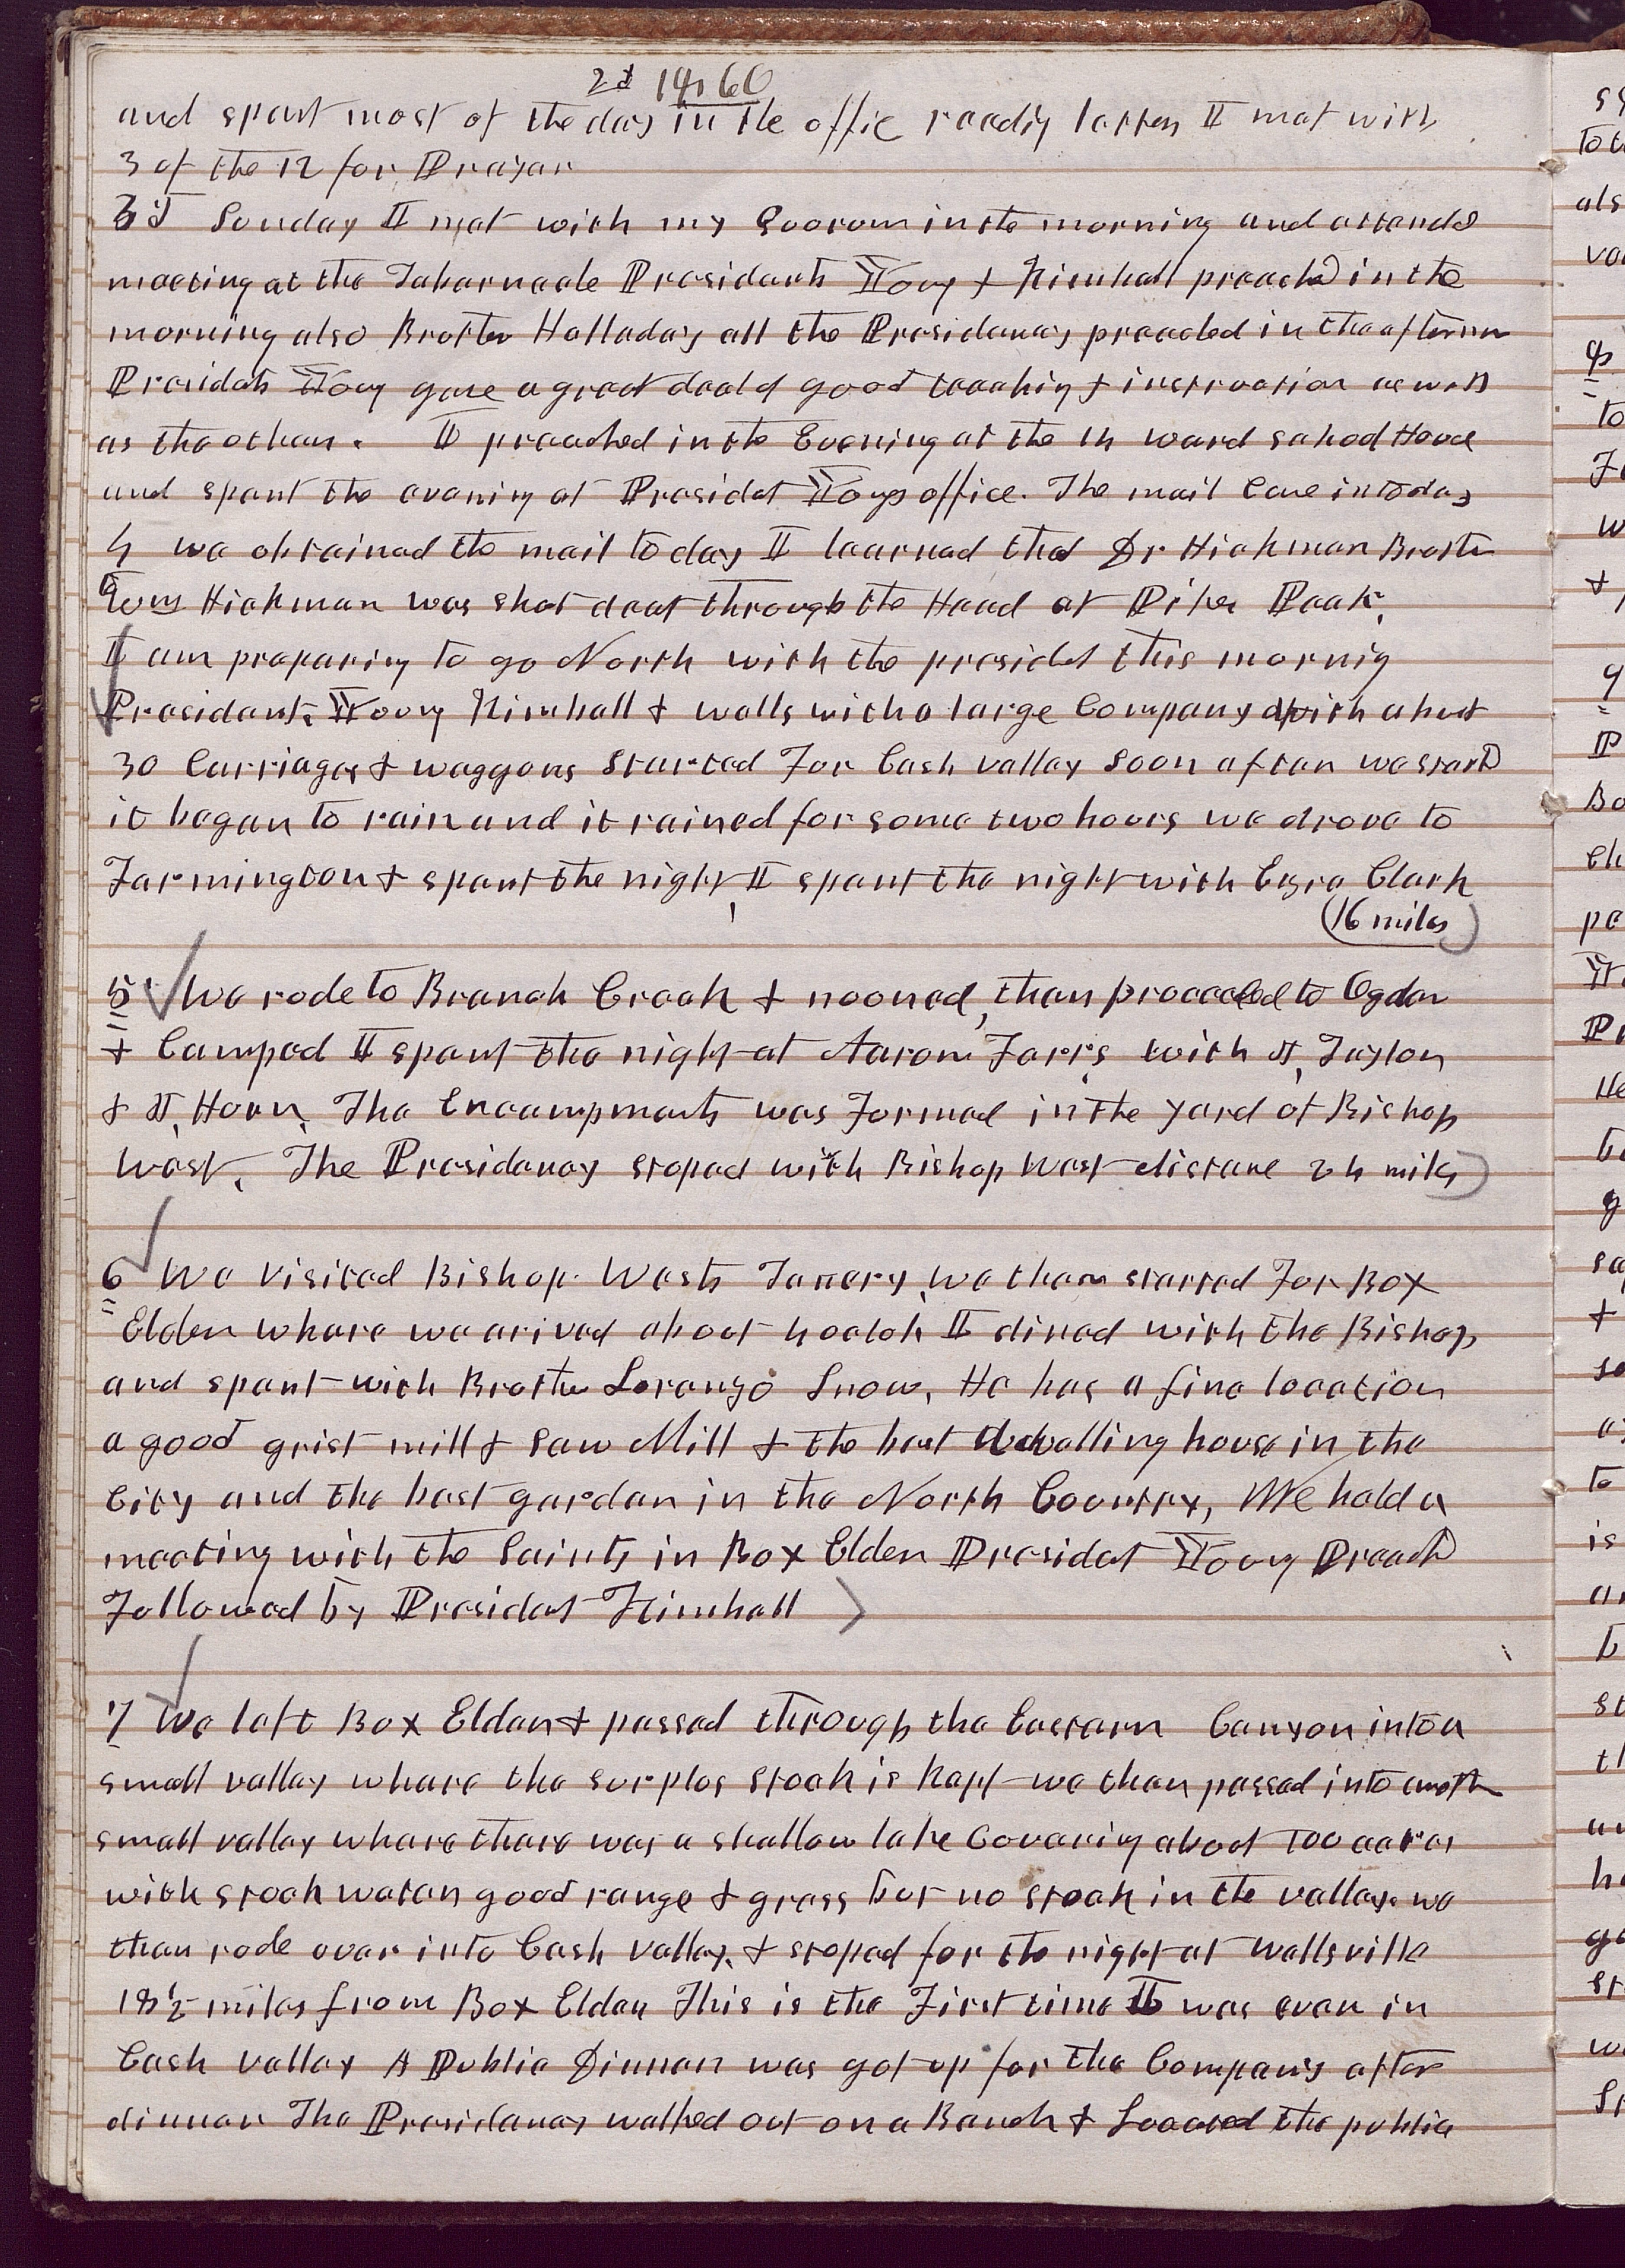 2d 1860
and spent most of the day in the office reading letters I met with
3 of the 12 for Prayer
3d Sunday I met with my Quorum in the morning and attended
meeting at the Tabernacle Presidents Young & Kimball preached in the
morning also Brother Holladay all the Presidency preached in the afternn
Presidets Young gave a great deal of good teaching & instruction as well
as the others. I preached in the Evening at the 14 ward school House
and spent the evening at Presidet Youngs office. The mail Came in to day
4 we obtained the mail to day I learned that Dr Hickman Brother
to Wm Hickman was shot dead through the Head at Pikes Peak.
I am preparing to go North with the presidet this mornig
Presidents Young Kimball & wells with a large Company with about
30 Carriages & waggons started For Cash valley Soon after we started
it began to rain and it rained for some two hours we drove to
Farmington & spent the night I spent the night with Ezra Clark
(16 miles)
5 We rode to Branch Creek & nooned, then proceeded to Ogden
& Camped I spent the night at Aaron Farr's with J, Taylor
& J, Horn. The Encampments was Formed in the yard of Bishop
West. The Presidency stoped with Bishop West distane 24 miles)
6 We visited Bishop Wests Tanery, we then started For Box
Elder where we arived about 4 oclok I dined with the Bishop
and spent with Brother Lorenzo Snow, He has a fine location
a good grist mill & Saw Mill & the best dwelling house in the
City and the best garden in the North Country, We held a
meeting with the Saints in Box Elder Presidet Young Preachd
Followed by Presidet Kimball
7 We left Box Elder & passed through the Eastern Canyon into a
small valley where the surplus stock is kept we then passed into another
small valley where there was a shallow lake Covering about 100 acres
with stock water good range & grass but no stock in the valley. we
then rode over into Cash valley. & stoped for the night at Wellsville
18 1/2 miles from Box Elder This is the First time I was ever in
Cash valley A Public Dinner was got up for the Company after
dinner The Presidency walked out on a Bench & Located the public